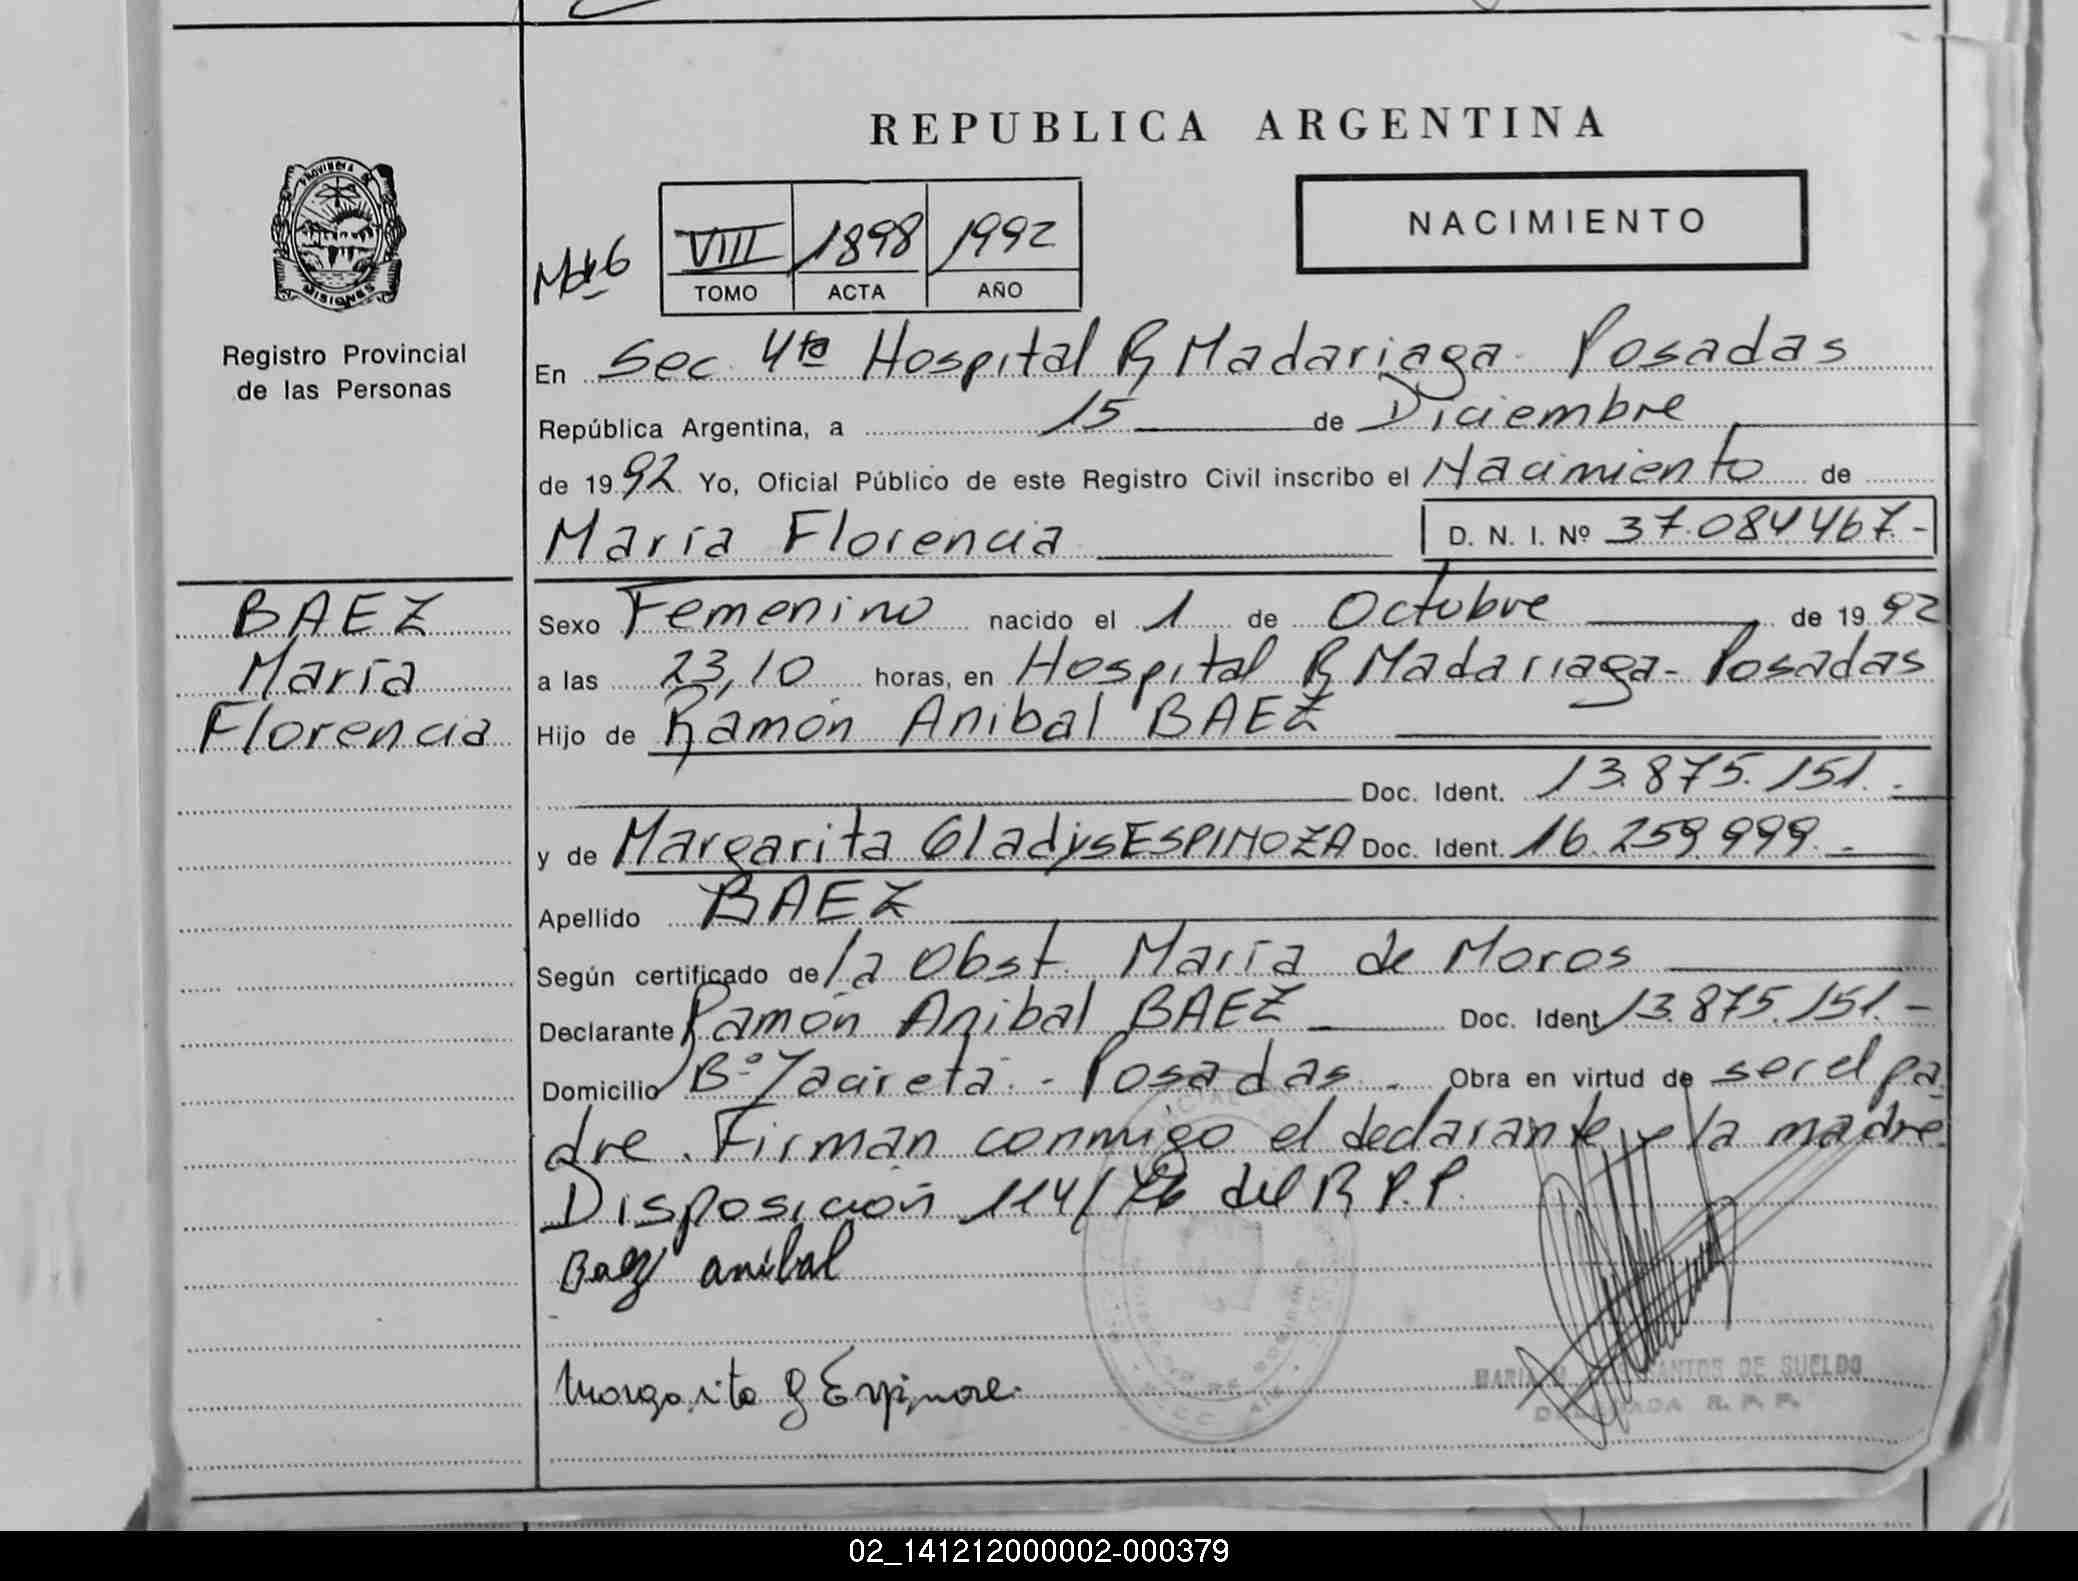 REPUBLICA ARGENTINA
PROVINCIA DE
MISIONES
Registro Provincial
de las Personas
VIII 1898 1992
TOMO ACTA AÑO
NACIMIENTO
En Sec. 4ta Hospital R Madariaga - Posadas
República Argentina, a 15 de Diciembre
de 1992 Yo, Oficial Público de este Registro Civil inscribo el Nacimiento de
María Florencia D. N. I. Nº 37.084.467.-
BAEZ
María
Florencia
Sexo Femenino nacido el 1 de Octubre de 1992
a las 23,10 horas, en Hospital R Madariaga - Posadas
Hijo de Ramón Anibal BAEZ
Doc. Ident. 13.875.151.-
y de Margarita Gladys ESPINOZA Doc. Ident. 16.259.999.-
Apellido BAEZ
Según certificado de la Obst. María de Moros
Declarante Ramón Anibal BAEZ Doc. Ident 13.875.151.-
Domicilio Bº Yacireta - Posadas. Obra en virtud de ser el pa
dre. Firman conmigo el declarante y la madre.
Disposición 114/76 del R.P.P.
Baez anibal
Margarita G Espinoze
SANTOS DE SUELDO
DELEGADA R. P. P.
02_141212000002-000379